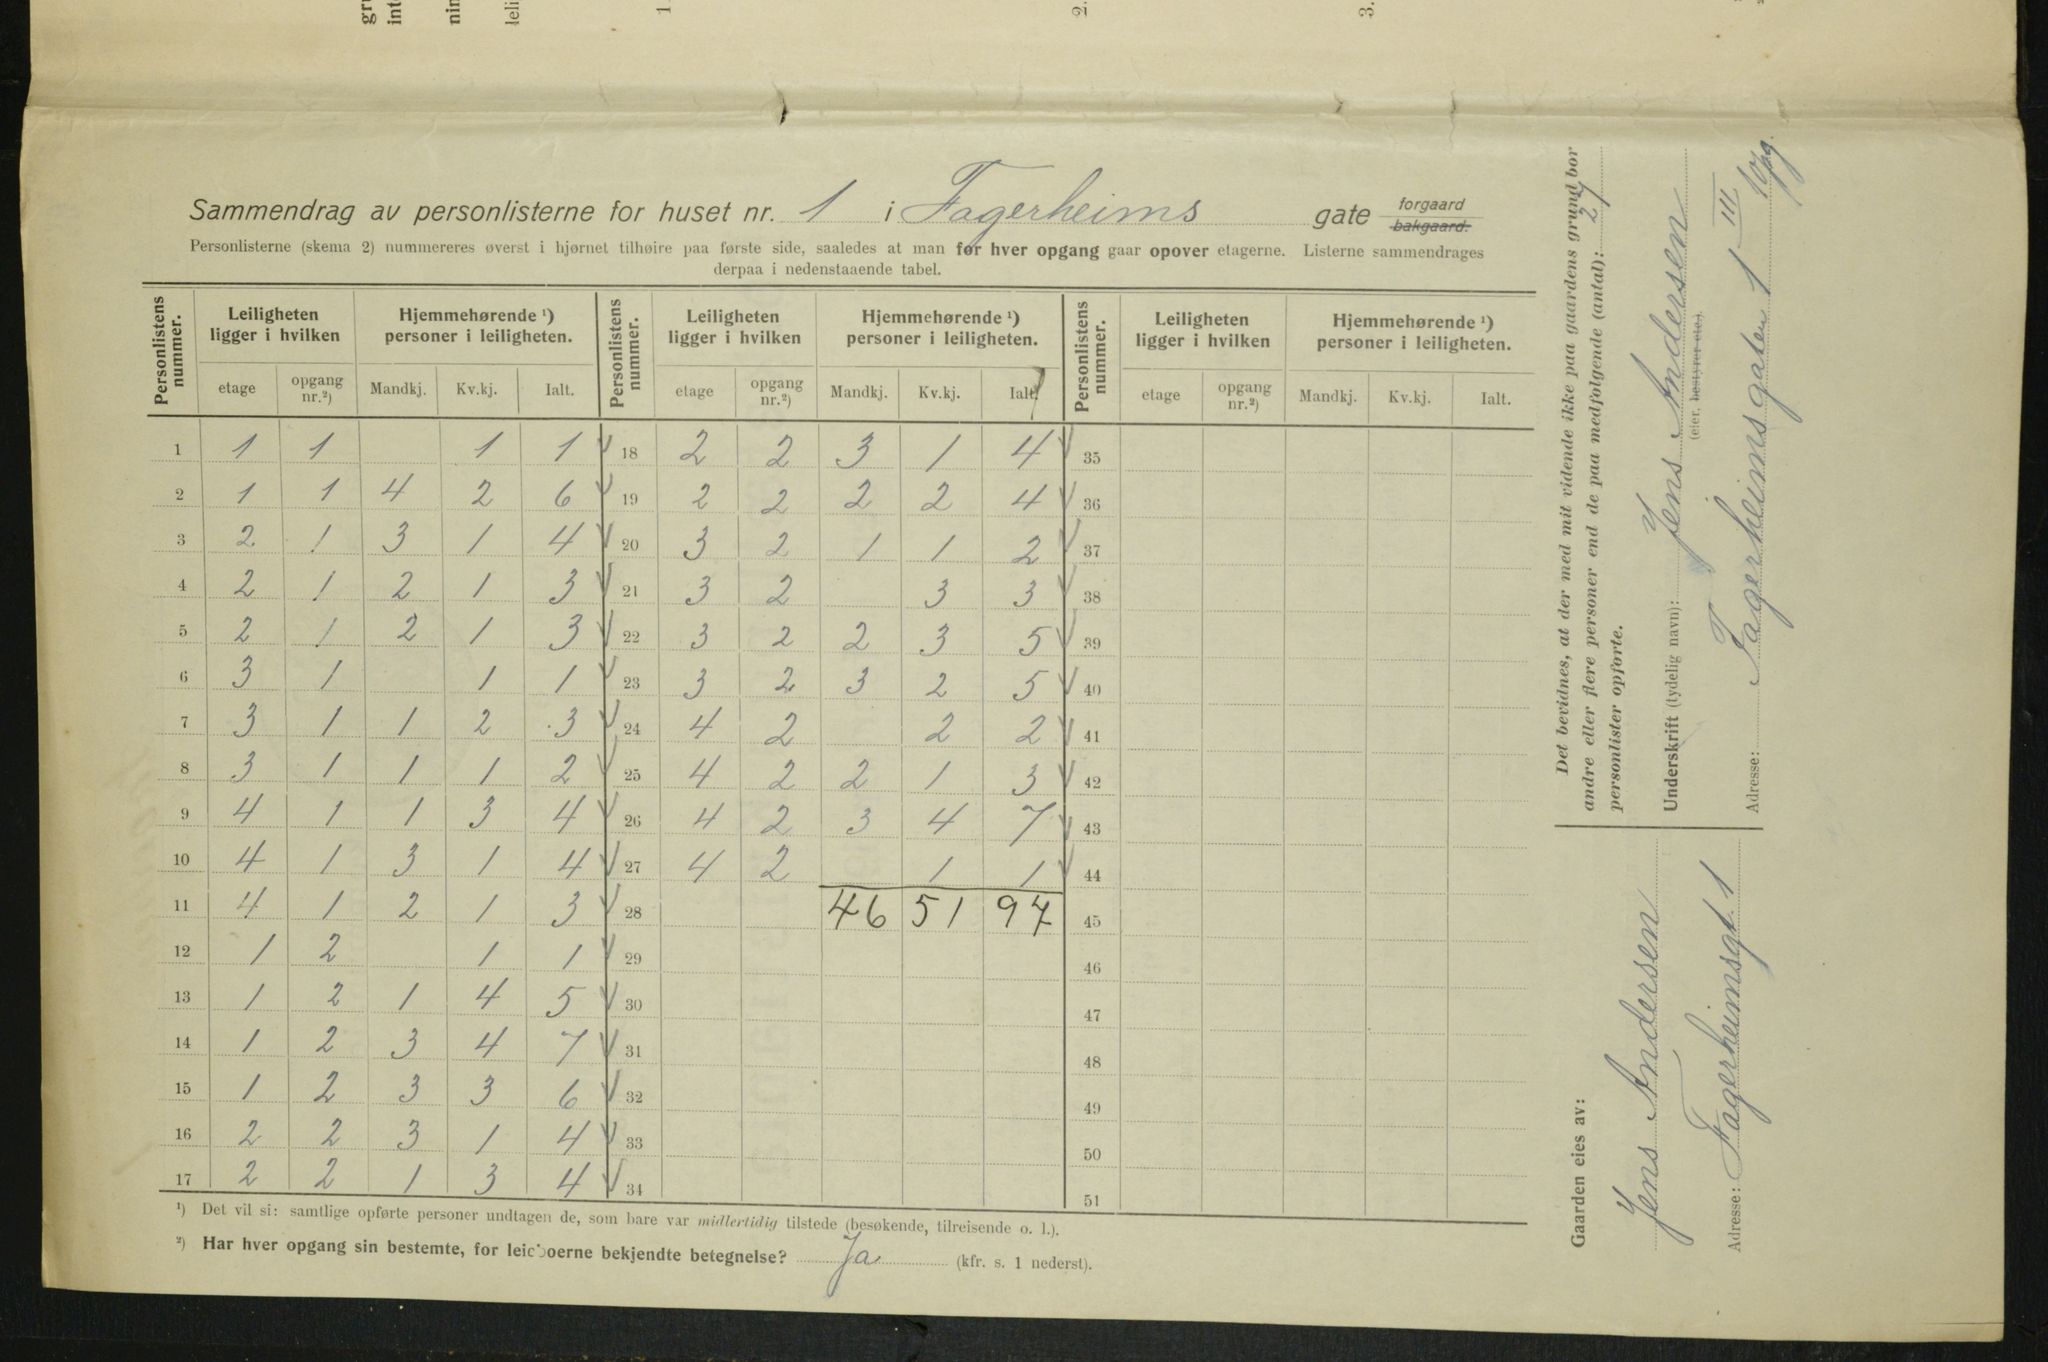 Sammendrag av personlisterne for huset nr. 1 i Fagerheims gate forgaard bakgaard.
Personlisterne (skema 2) nummereres øverst i hjørnet tilhøire paa første side, saaledes at man for hver opgang gaar opover etagerne. Listerne sammendrages
derpaa i nedenstaaende tabel.
Personlistens nummer. Leiligheten ligger i hvilken Hjemmehørende ¹) personer i leiligheten. Personlistens nummer. Leiligheten ligger i hvilken Hjemmehørende ¹) personer i leiligheten. Personlistens nummer. Leiligheten ligger i hvilken Hjemmehørende ¹) personer i leiligheten.
etage opgang nr.²) Mandkj. Kv.kj. Ialt. etage opgang nr.²) Mandkj. Kv.kj. Ialt. etage opgang nr.²) Mandkj. Kv.kj. Ialt.
1 1 1 1 1 18 2 2 3 1 4 35
2 1 1 4 2 6 19 2 2 2 2 4 36
3 2 1 3 1 4 20 3 2 1 1 2 37
4 2 1 2 1 3 21 3 2 3 3 38
5 2 1 2 1 3 22 3 2 2 3 5 39
6 3 1 1 1 23 3 2 3 2 5 40
7 3 1 1 2 3 24 4 2 2 2 41
8 3 1 1 1 2 25 4 2 2 1 3 42
9 4 1 1 3 4 26 4 2 3 4 7 43
10 4 1 3 1 4 27 4 2 1 1 44
11 4 1 2 1 3 28 46 51 97 45
12 1 2 1 1 29 46
13 1 2 1 4 5 30 47
14 1 2 3 4 7 31 48
15 1 2 3 3 6 32 49
16 2 2 3 1 4 33 50
17 2 2 1 3 4 34 51
¹) Det vil si: samtlige opførte personer undtagen de, som bare var midlertidig tilstede (besøkende, tilreisende o. l.).
²) Har hver opgang sin bestemte, for leieboerne bekjendte betegnelse? Ja (kfr. s. 1 nederst).
Det bevidnes, at der med mit vidende ikke paa gaardens grund bor
andre eller flere personer end de paa medfølgende (antal): 27
personlister opførte.
Underskrift (tydelig navn): Jens Andersen
(eier, bestyrer etc.)
Adresse: Fagerheimsgaten 1 III opg.
Gaarden eies av:
Jens Andersen
Adresse: Fagerheimsgt. 1
1.
2.
3.